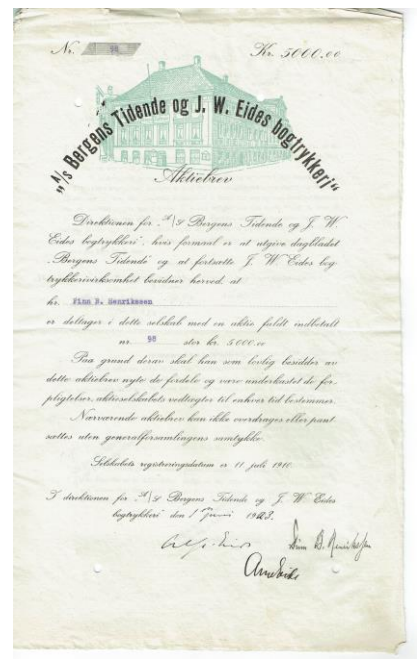 Nr. 98 Kr. 5000.00
"A/S Bergens Tidende og J. W. Eides bogtrykkeri"
Aktiebrev
Direktionen for "A/S Bergens Tidende og J. W.
Eides bogtrykkeri", hvis formaal er at utgive dagbladet
"Bergens Tidende" og at fortsætte J. W. Eides bog-
trykkerivirksomhet bevidner herved, at
hr. Finn B. Henriksen
er deltager i dette selskab med en aktie fuldt indbetalt
nr. 98 stor kr. 5000.00
Paa grund derav skal han som lovlig besidder av
dette aktiebrev nyte de fordele og være underkastet de for-
pligtelser, aktieselskabets vedtægter til enhver tid bestemmer.
Nærværende aktiebrev kan ikke overdrages eller pant-
sættes uten generalforsamlingens samtykke.
Selskabets registreringsdatum er 11 juli 1910.
I direktionen for "A/S Bergens Tidende og J. W. Eides
bogtrykkeri" den 1ste juni 1923.
Finn B. Henriksen
Arne Eide